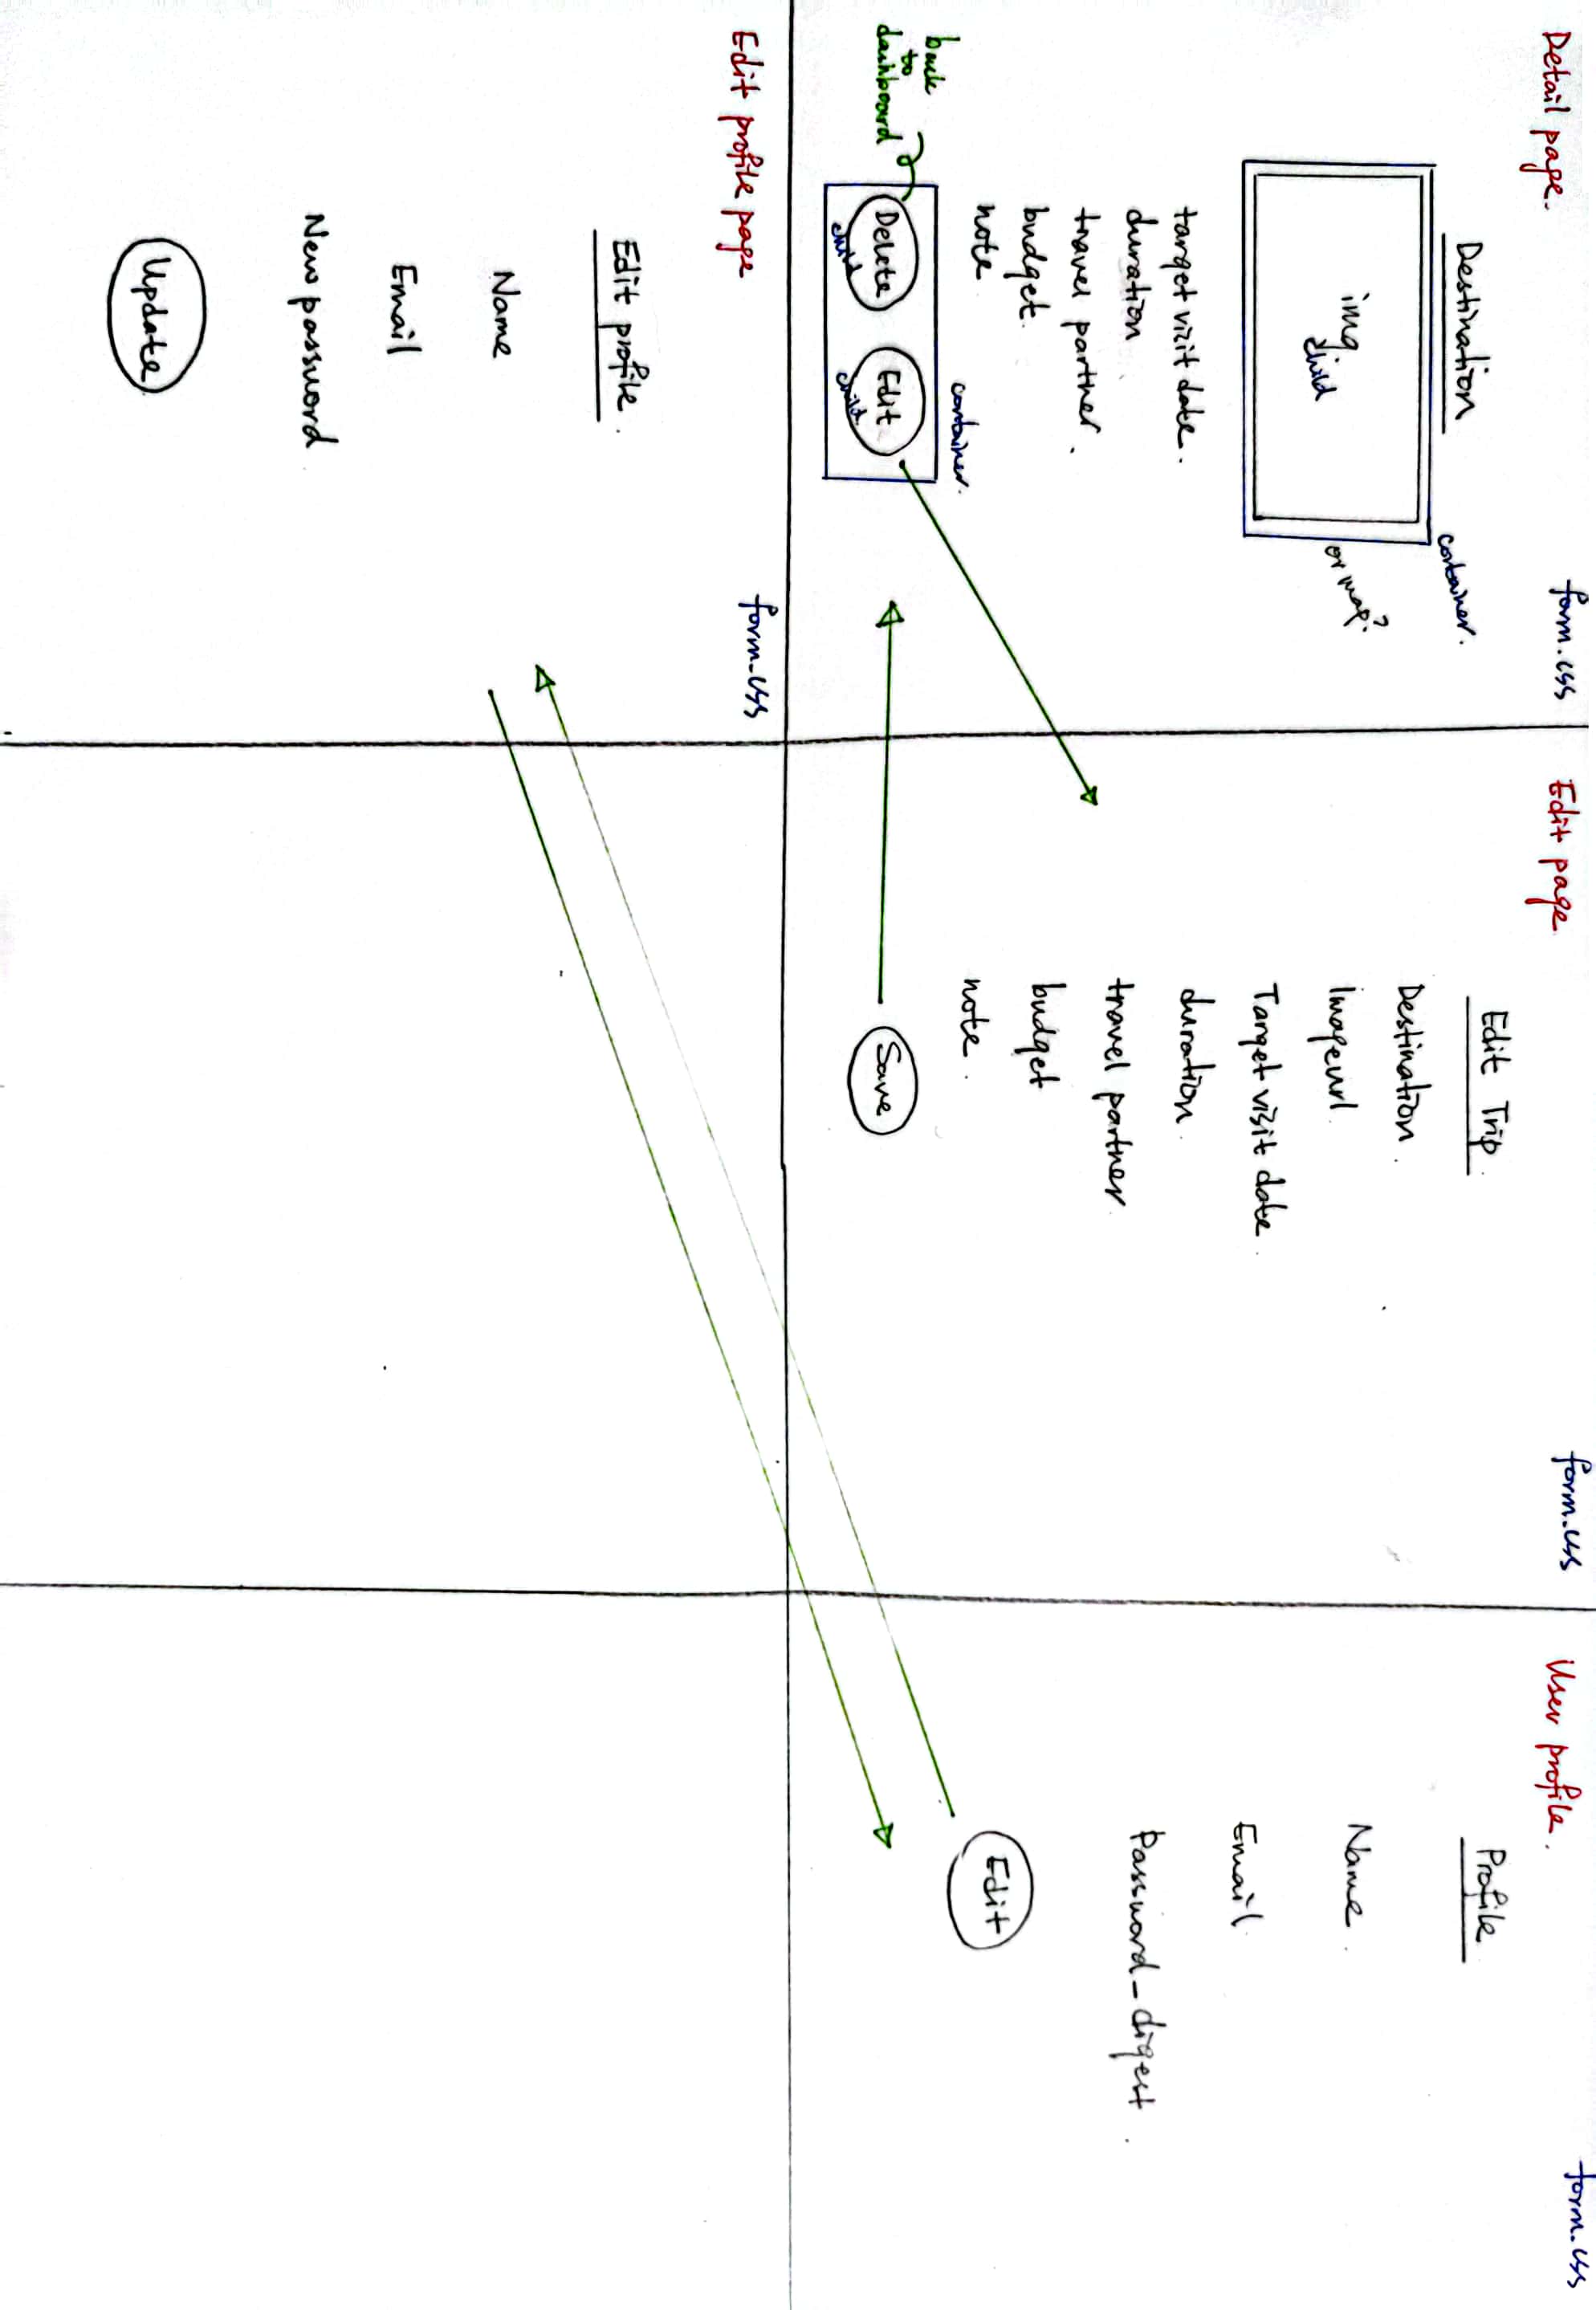 Detail page.
form.css
Destination
container.
img.
child
or map?
target visit date.
duration
travel partner.
budget.
note
container.
back
to
dashboard
Delete
child
Edit
child
Edit page
form.css
Edit Trip.
Destination.
Imageurl
Target visit date.
duration.
travel partner
budget
note.
Save
User profile.
form.css
Profile
Name.
Email
Password_digest.
Edit
Edit profile page
form.css
Edit profile.
Name
Email
New password
Update